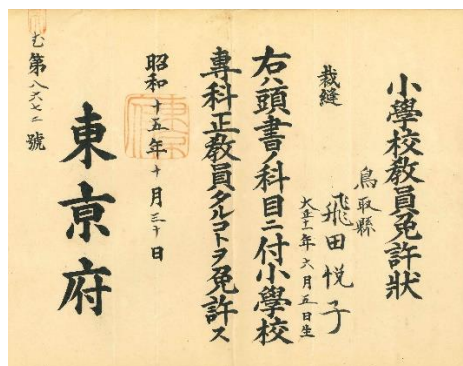 小學校教員免許状
鳥取縣
飛田悦子
大正十一年六月五日生
裁縫
右ハ頭書ノ科目ニ付小學校
專科正教員タルコトヲ免許ス
昭和十五年十月三十日
東京府
む第八六七二號